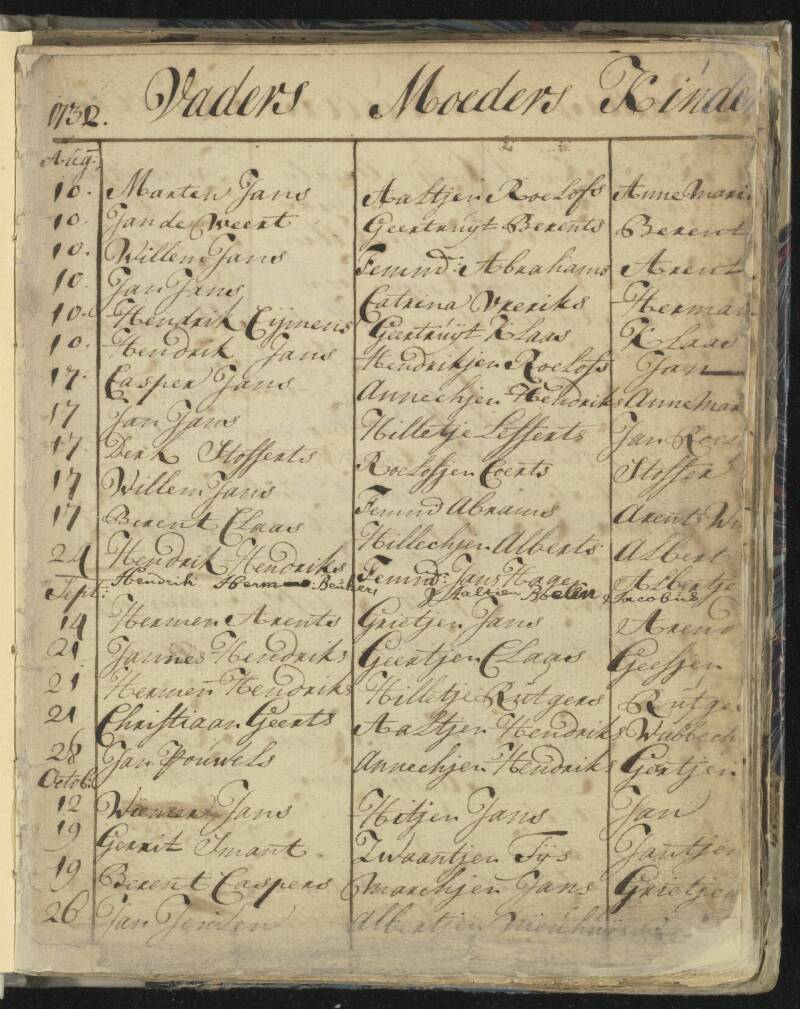 1732. Vaders Moeders Kinde
Aug:
10. Marten Jans Aaltjen Roelofs Anne Mari
10. Jan de Weert Geertruyt Berents Berent
10. Willem Jans Femmd: Abrahams Arent
10. Jan Jans Catrina Vreriks Herman
10. Hendrik Cijmens Geertruijt Klaas Klaas
10. Hendrik Jans Hendrikjen Roelofs Jan
17. Casper Jans Annechjen Hendriks Anne Mar
17 Jan Jans Hilletje Lefferts Jan Roel
17. Derk Stofferts Roelofjen Coerts Stoffer
17 Willem Jans Femmd Abrams Arent Wi
17 Berent Claas Hillechjen Alberts Albert
24 Hendrik Hendriks Femmd: Jans Hagen Albertje
Sept: Hendrik Herm Beukers Aaltien Roelen Jacobus
14 Hermen Arents Grietjen Jans Arend
21 Jannes Hendriks Geertjen Claas Geesjen
21 Hermen Hendriks Hilletje Rutgers Rutger
21 Christiaan Geerts Aaltjen Hendriks Wubbech
28 Jan Pouwels Annechjen Hendriks Geertjen
Octob:
12 Wiemer Jans Hitjen Jans Jan
19 Gerrit Smant Zwaantjen Tijs Jantjen
19 Berent Caspers Marchjen Jans Grietjen
26 Jan Albertjen